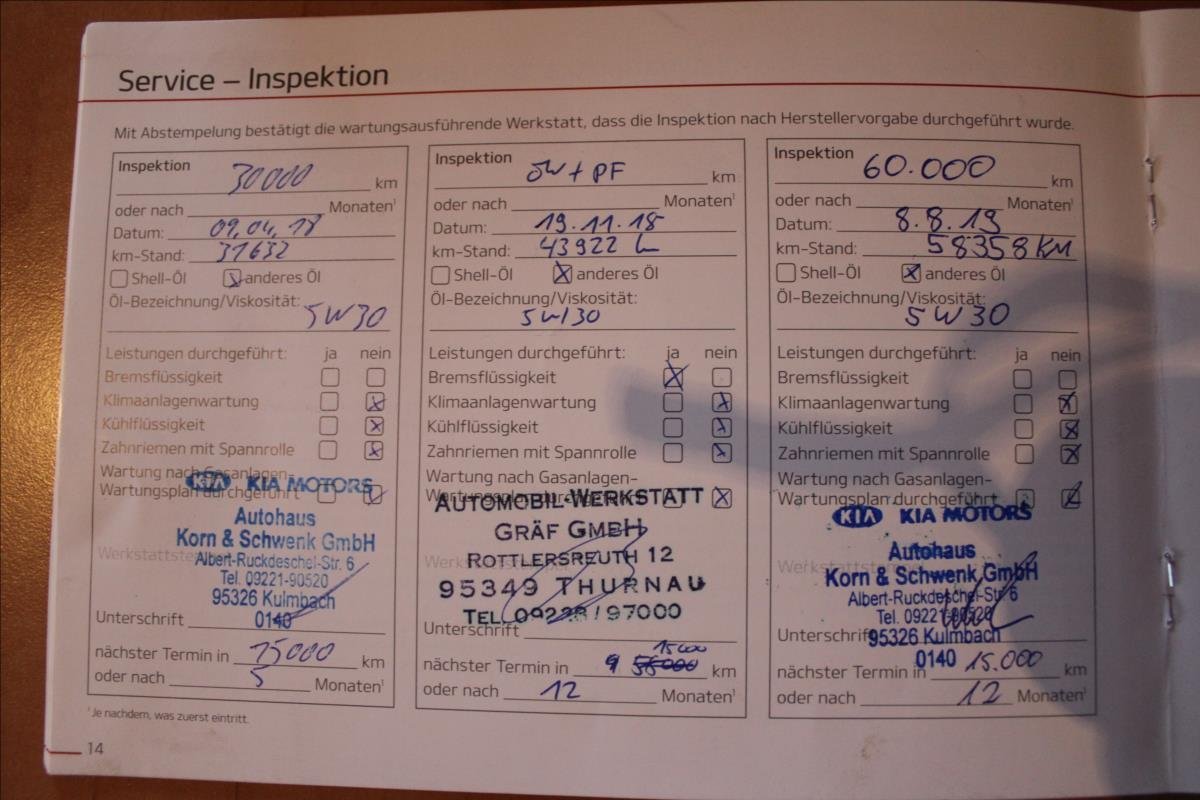 Service – Inspektion
Mit Abstempelung bestätigt die wartungsausführende Werkstatt, dass die Inspektion nach Herstellervorgabe durchgeführt wurde.
Inspektion 30000 km
oder nach Monaten¹
Datum: 09.04.18
km-Stand: 31632
Shell-Öl anderes Öl
Öl-Bezeichnung/Viskosität:
5W30
Leistungen durchgeführt: ja nein
Bremsflüssigkeit
Klimaanlagenwartung
Kühlflüssigkeit
Zahnriemen mit Spannrolle
Wartung nach Gasanlagen-
Wartungsplan durchgeführt
KIA KIA MOTORS
Autohaus
Korn & Schwenk GmbH
Albert-Ruckdeschel-Str. 6
Tel. 09221-90520
95326 Kulmbach
0140
Unterschrift
nächster Termin in 15000 km
oder nach 5 Monaten¹
Inspektion ÖW + PF km
oder nach Monaten¹
Datum: 19.11.18
km-Stand: 43922
Shell-Öl anderes Öl
Öl-Bezeichnung/Viskosität:
5W30
Leistungen durchgeführt: ja nein
Bremsflüssigkeit
Klimaanlagenwartung
Kühlflüssigkeit
Zahnriemen mit Spannrolle
Wartung nach Gasanlagen-
Wartungsplan durchgeführt
AUTOMOBIL-WERKSTATT
GRÄF GMBH
ROTTLERSREUTH 12
95349 THURNAU
TEL. 09228/97000
Unterschrift
15000
nächster Termin in km
oder nach 12 Monaten¹
Inspektion 60.000 km
oder nach Monaten¹
Datum: 8.8.19
km-Stand: 58358 KM
Shell-Öl anderes Öl
Öl-Bezeichnung/Viskosität:
5W30
Leistungen durchgeführt: ja nein
Bremsflüssigkeit
Klimaanlagenwartung
Kühlflüssigkeit
Zahnriemen mit Spannrolle
Wartung nach Gasanlagen-
Wartungsplan durchgeführt
KIA KIA MOTORS
Autohaus
Korn & Schwenk GmbH
Albert-Ruckdeschel-Str. 6
Tel. 09221-90520
Unterschrift 95326 Kulmbach
0140
nächster Termin in 15.000 km
oder nach 12 Monaten¹
¹ Je nachdem, was zuerst eintritt.
14